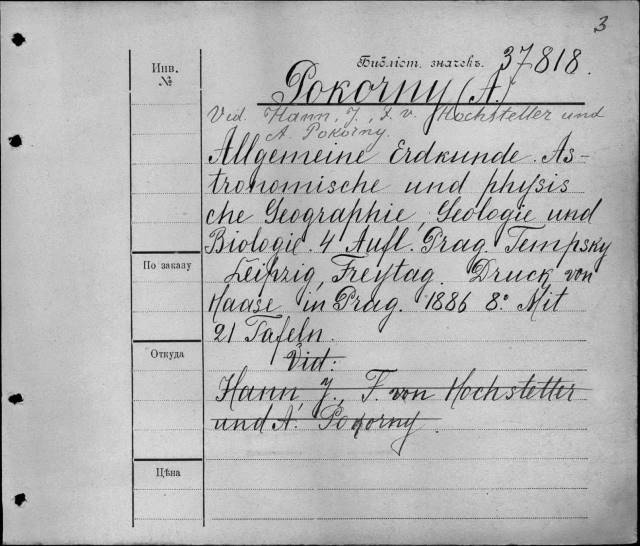 3
Инв. №
Библіст. значекъ. 37818.
Pokorny (A.)
Vid. Hann, J., F. v. Hochstetter und
A. Pokorny.
Allgemeine Erdkunde. As-
tronomische und physis
che Geographie, Geologie und
Biologie. 4 Aufl. Prag. Tempsky
По заказу
Leipzig, Freytag. Druck von
Haase in Prag. 1886 8º Mit
21 Tafeln.
Откуда
Vid:
Hann, J., F. von Hochstetter
und A. Pokorny.
Цѣна